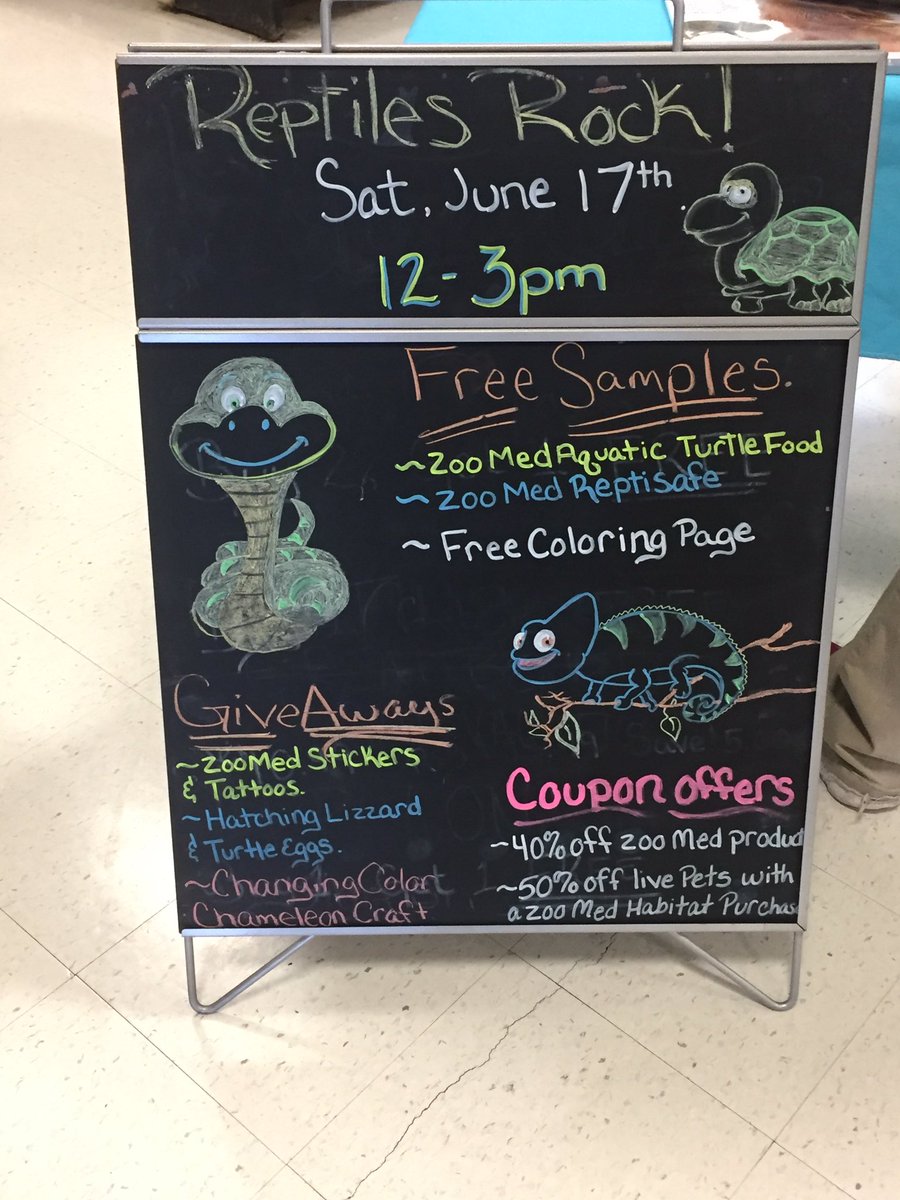 Reptiles Rock!
Sat, June 17th.
12-3pm
Free Samples.
~Zoo Med Aquatic Turtle Food
~Zoo Med Reptisafe
~ Free Coloring Page
GiveAways
~Zoo Med Stickers
& Tattoos.
~Hatching Lizzard
& Turtle Eggs.
~Changing Color
Chameleon Craft
Coupon offers
~40% off Zoo Med product
~50% off live Pets with
a Zoo Med Habitat Purchase